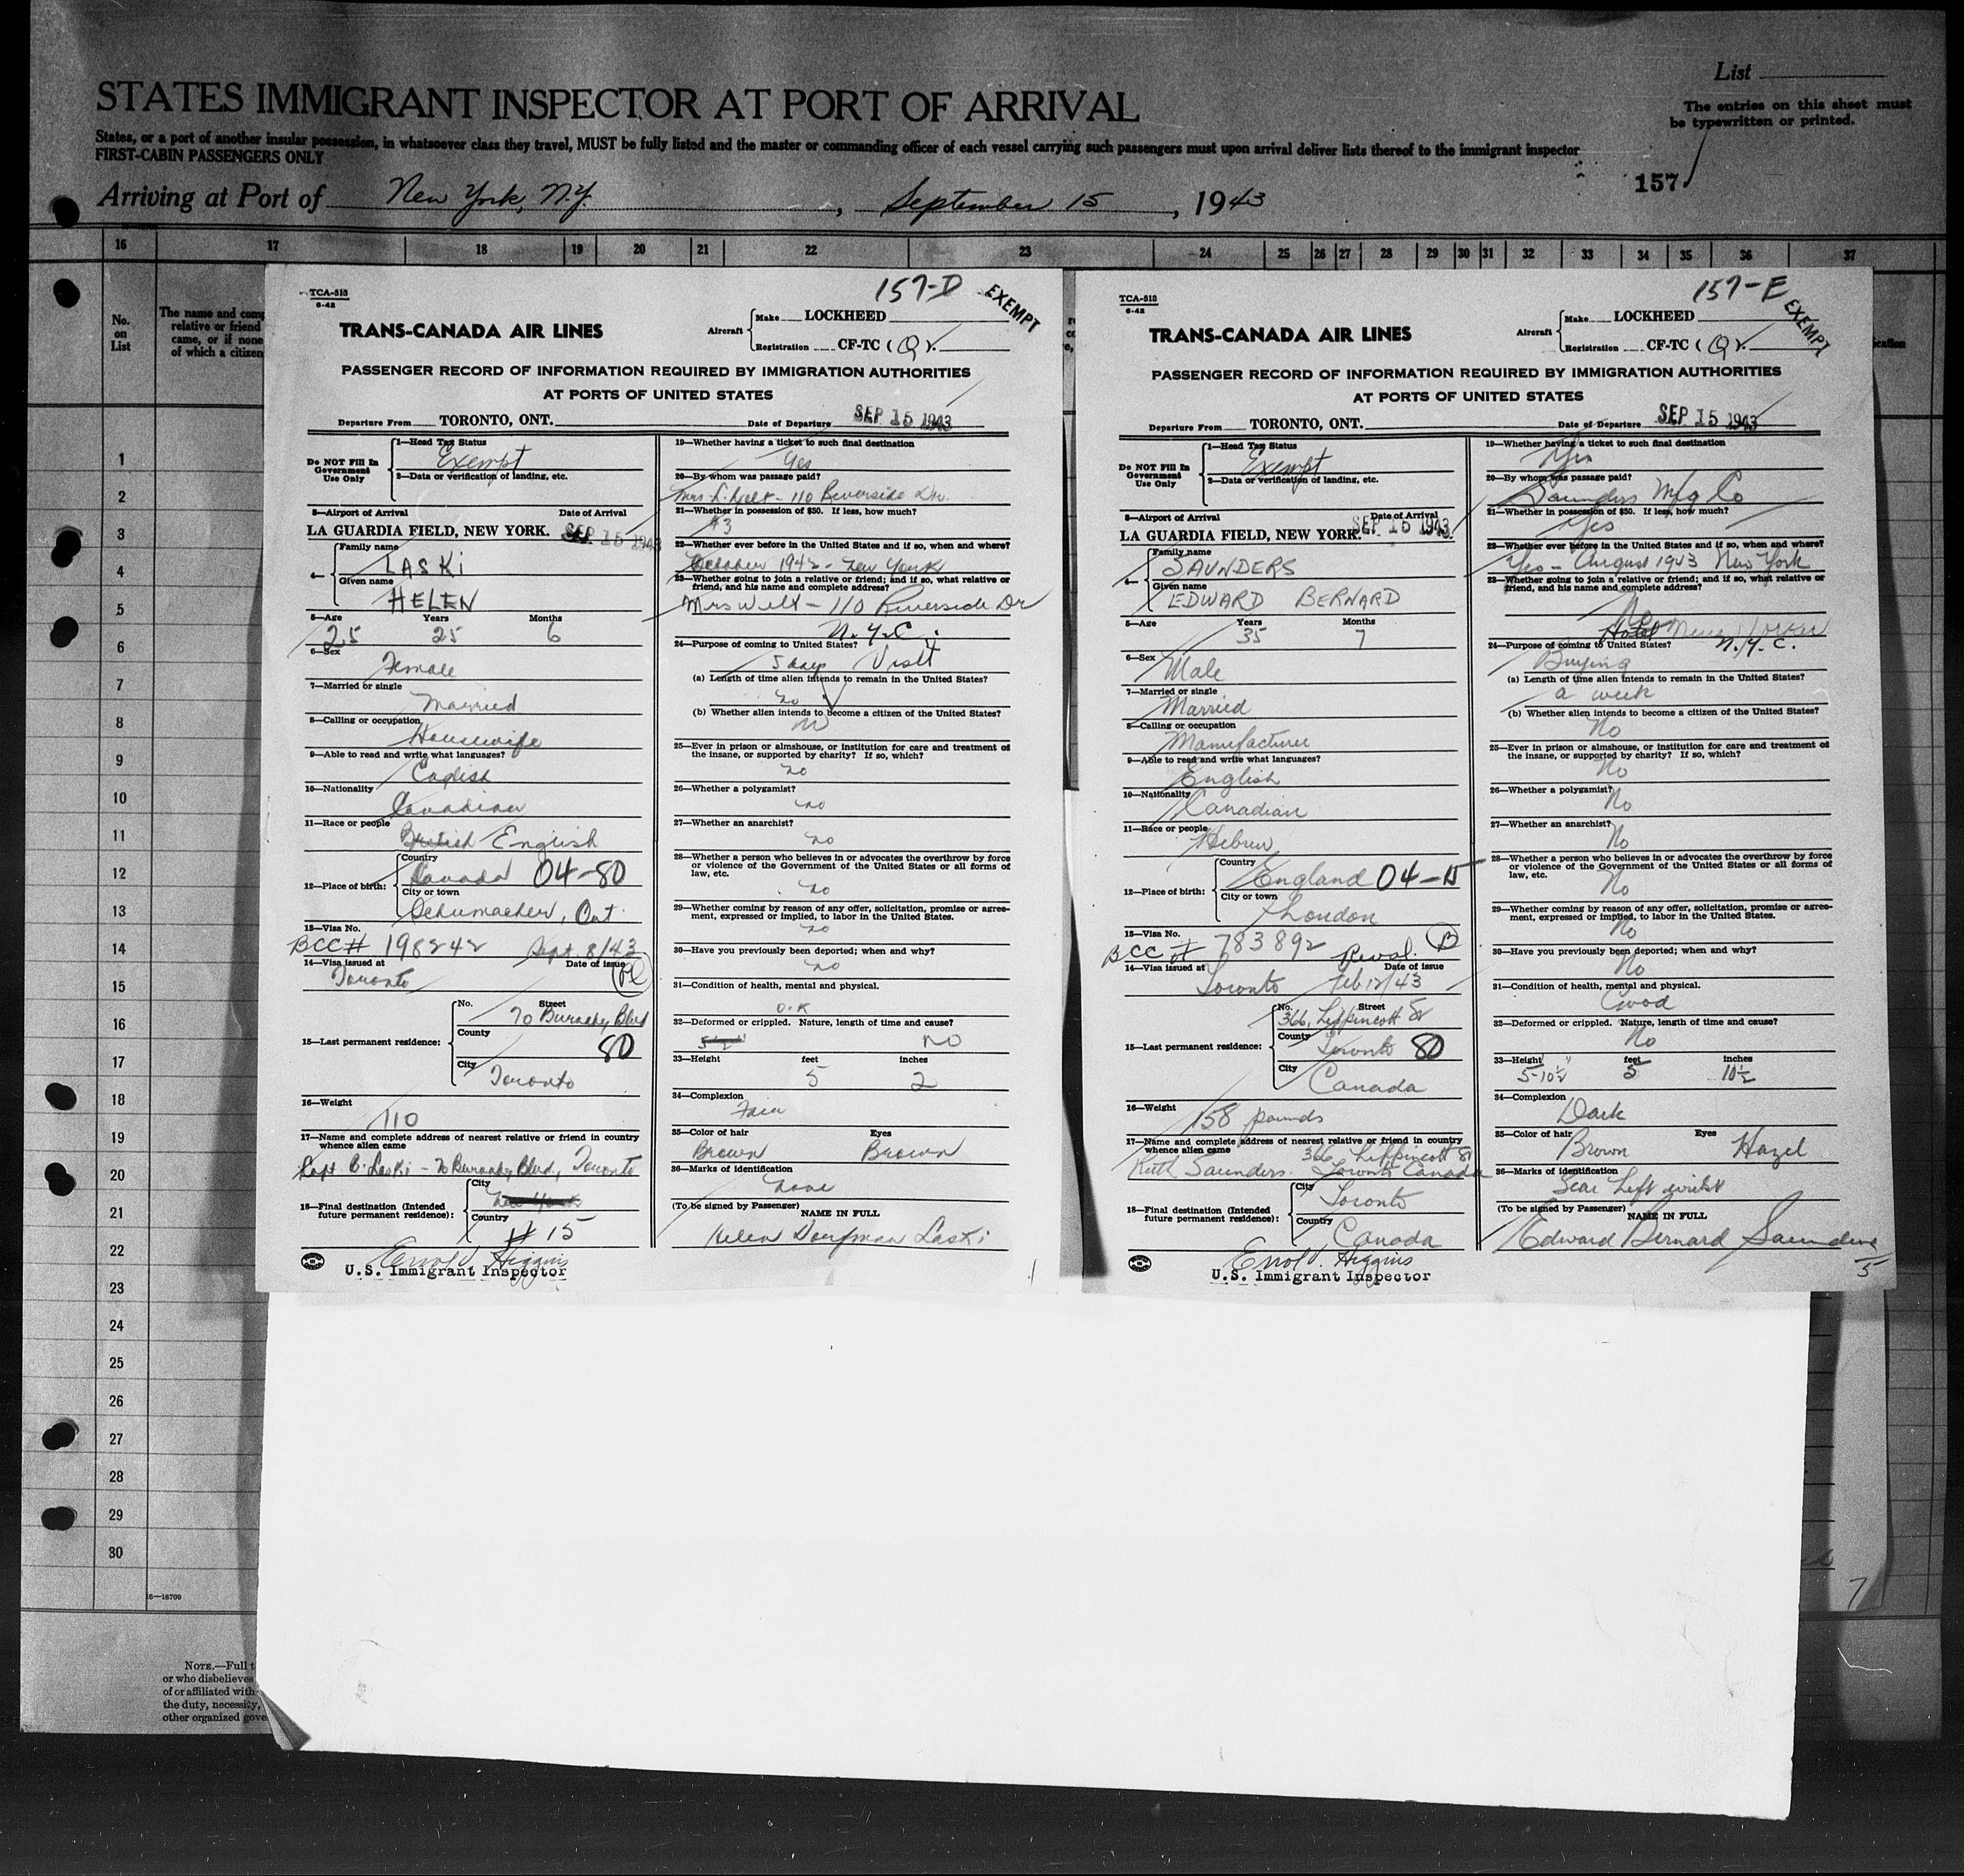 List
STATES IMMIGRANT INSPECTOR AT PORT OF ARRIVAL
The entries on this sheet must
be typewritten or printed.
States, or a port of another insular possession, in whatsoever class they travel, MUST be fully listed and the master or commanding officer of each vessel carrying such passengers must upon arrival deliver lists thereof to the immigrant inspector
FIRST-CABIN PASSENGERS ONLY
157
Arriving at Port of New York, N.Y., September 15, 1943
16 17 18 19 20 21 22 23 24 25 26 27 28 29 30 31 32 33 34 35 36 37
No.
on
List
The name and comp
relative or friend
came, or if none
of which a citizen
1
2
3
4
5
6
7
8
9
10
11
12
13
14
15
16
17
18
19
20
21
22
23
24
25
26
27
28
29
30
16—18709
NOTE.—Full t
or who disbelieves
of or affiliated with
the duty, necessity,
other organized gove
157-D
EXEMPT
TCA-513
6-42
TRANS-CANADA AIR LINES
Aircraft
Make LOCKHEED
Registration CF-TC (Q).
PASSENGER RECORD OF INFORMATION REQUIRED BY IMMIGRATION AUTHORITIES
AT PORTS OF UNITED STATES
Departure From TORONTO, ONT. Date of Departure SEP 15 1943
Do NOT Fill In
Government
Use Only
1—Head Tax Status
Exempt
2—Data or verification of landing, etc.
3—Airport of Arrival Date of Arrival
LA GUARDIA FIELD, NEW YORK. SEP 15 1943
4—
Family name
LASKI
Given name
HELEN
5—Age Years Months
25 25 6
6—Sex
Female
7—Married or single
Married
8—Calling or occupation
Housewife
9—Able to read and write what languages?
English
10—Nationality
Canadian
11—Race or people
British English
12—Place of birth:
Country
Canada 04-80
City or town
Schumacher, Ont.
13—Visa No.
BCC# 198242 Sept. 8/43
14—Visa issued at Date of issue
Toronto
15—Last permanent residence:
No. Street
70 Burnaby Blvd
County
80
City
Toronto
16—Weight
110
17—Name and complete address of nearest relative or friend in country
whence alien came
Capt B. Laski - 70 Burnaby Blvd., Toronto
18—Final destination (Intended
future permanent residence):
City
New York
Country
# 15
Errol V. Higgins
U.S. Immigrant Inspector
19—Whether having a ticket to such final destination
Yes
20—By whom was passage paid?
Mrs. L. Welt - 110 Riverside Dr.
21—Whether in possession of $50. If less, how much?
$3
22—Whether ever before in the United States and if so, when and where?
October 1942 - New York
23—Whether going to join a relative or friend; and if so, what relative or
friend, and his name and complete address?
Mrs Welt - 110 Riverside Dr
N.Y.C.
24—Purpose of coming to United States?
5 days Visit
(a) Length of time alien intends to remain in the United States?
no
(b) Whether alien intends to become a citizen of the United States?
no
25—Ever in prison or almshouse, or institution for care and treatment of
the insane, or supported by charity? If so, which?
no
26—Whether a polygamist?
no
27—Whether an anarchist?
no
28—Whether a person who believes in or advocates the overthrow by force
or violence of the Government of the United States or all forms of
law, etc.
no
29—Whether coming by reason of any offer, solicitation, promise or agree-
ment, expressed or implied, to labor in the United States.
no
30—Have you previously been deported; when and why?
no
31—Condition of health, mental and physical.
O.K
32—Deformed or crippled. Nature, length of time and cause?
no
33—Height feet inches
5 2
34—Complexion
Fair
35—Color of hair Eyes
Brown Brown
36—Marks of identification
none
(To be signed by Passenger) NAME IN FULL
Helen Dorfman Laski
157-E
EXEMPT
TCA-513
6-42
TRANS-CANADA AIR LINES
Aircraft
Make LOCKHEED
Registration CF-TC (Q).
PASSENGER RECORD OF INFORMATION REQUIRED BY IMMIGRATION AUTHORITIES
AT PORTS OF UNITED STATES
Departure From TORONTO, ONT. Date of Departure SEP 15 1943
Do NOT Fill In
Government
Use Only
1—Head Tax Status
Exempt
2—Data or verification of landing, etc.
3—Airport of Arrival Date of Arrival
LA GUARDIA FIELD, NEW YORK. SEP 15 1943
4—
Family name
SAUNDERS
Given name
EDWARD BERNARD
5—Age Years Months
35 7
6—Sex
Male
7—Married or single
Married
8—Calling or occupation
Manufacturer
9—Able to read and write what languages?
English
10—Nationality
Canadian
11—Race or people
Hebrew
12—Place of birth:
Country
England 04-15
City or town
London
13—Visa No.
BCC # 783892 Reval. B
14—Visa issued at Date of issue
Toronto Feb 12/43
15—Last permanent residence:
No. Street
366, Lippincott St
County
Toronto 80
City
Canada
16—Weight
158 pounds
17—Name and complete address of nearest relative or friend in country
whence alien came 366 Lippincott St
Ruth Saunders. Toronto Canada
18—Final destination (Intended
future permanent residence):
City
Toronto
Country
Canada
Errol V. Higgins
U.S. Immigrant Inspector
19—Whether having a ticket to such final destination
Yes
20—By whom was passage paid?
Saunders Mfg Co
21—Whether in possession of $50. If less, how much?
Yes
22—Whether ever before in the United States and if so, when and where?
Yes - August 1943 New York
23—Whether going to join a relative or friend; and if so, what relative or
friend, and his name and complete address?
No
Hotel
N.Y.C.
24—Purpose of coming to United States?
Buying
(a) Length of time alien intends to remain in the United States?
a week
(b) Whether alien intends to become a citizen of the United States?
No
25—Ever in prison or almshouse, or institution for care and treatment of
the insane, or supported by charity? If so, which?
No
26—Whether a polygamist?
No
27—Whether an anarchist?
No
28—Whether a person who believes in or advocates the overthrow by force
or violence of the Government of the United States or all forms of
law, etc.
No
29—Whether coming by reason of any offer, solicitation, promise or agree-
ment, expressed or implied, to labor in the United States.
No
30—Have you previously been deported; when and why?
No
31—Condition of health, mental and physical.
Good
32—Deformed or crippled. Nature, length of time and cause?
No
33—Height feet inches
5-10½" 5 10½
34—Complexion
Dark
35—Color of hair Eyes
Brown Hazel
36—Marks of identification
Scar Left wrist
(To be signed by Passenger) NAME IN FULL
Edward Bernard Saunders
5
7